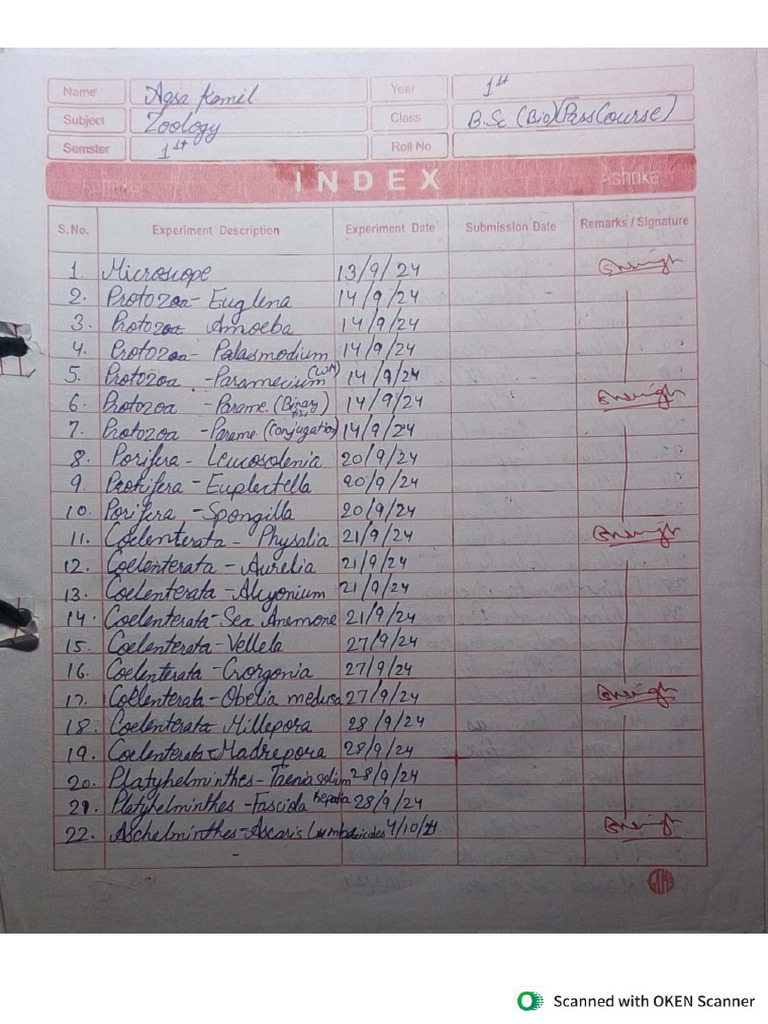 Name Aqsa Kamil Year 1st
Subject Zoology Class B.Sc (Bio)(Pass Course)
Semster 1st Roll No
INDEX ASHOKE
S.No. Experiment Description Experiment Date Submission Date Remarks / Signature
1. Microscope 13/9/24
2. Protozoa - Euglena 14/9/24
3. Protozoa Amoeba 14/9/24
4. Protozoa - Palasmodium 14/9/24
5. Protozoa - Paramecium (W.M) 14/9/24
6. Protozoa - Parame. (Binary 14/9/24
7. Protozoa - Parame (Conjugation) 14/9/24
8. Porifera - Leucosolenia 20/9/24
9. Porifera - Euplectella 20/9/24
10. Porifera - Spongilla 20/9/24
11. Coelenterata - Physalia 21/9/24
12. Coelenterata - Aurelia 21/9/24
13. Coelenterata - Alcyonium 21/9/24
14. Coelenterata - Sea Anemone 21/9/24
15. Coelenterata - Vellela 27/9/24
16. Coelenterata - Gorgonia 27/9/24
17. Coelenterata - Obelia medusa 27/9/24
18. Coelenterata Millepora 28/9/24
19. Coelenterata - Madrepora 28/9/24
20. Platyhelminthes - Taenia solium 28/9/24
21. Platyhelminthes - Fasciola hepatia 28/9/24
22. Aschelminthes - Ascaris Lumbricoides 4/10/24
Scanned with OKEN Scanner